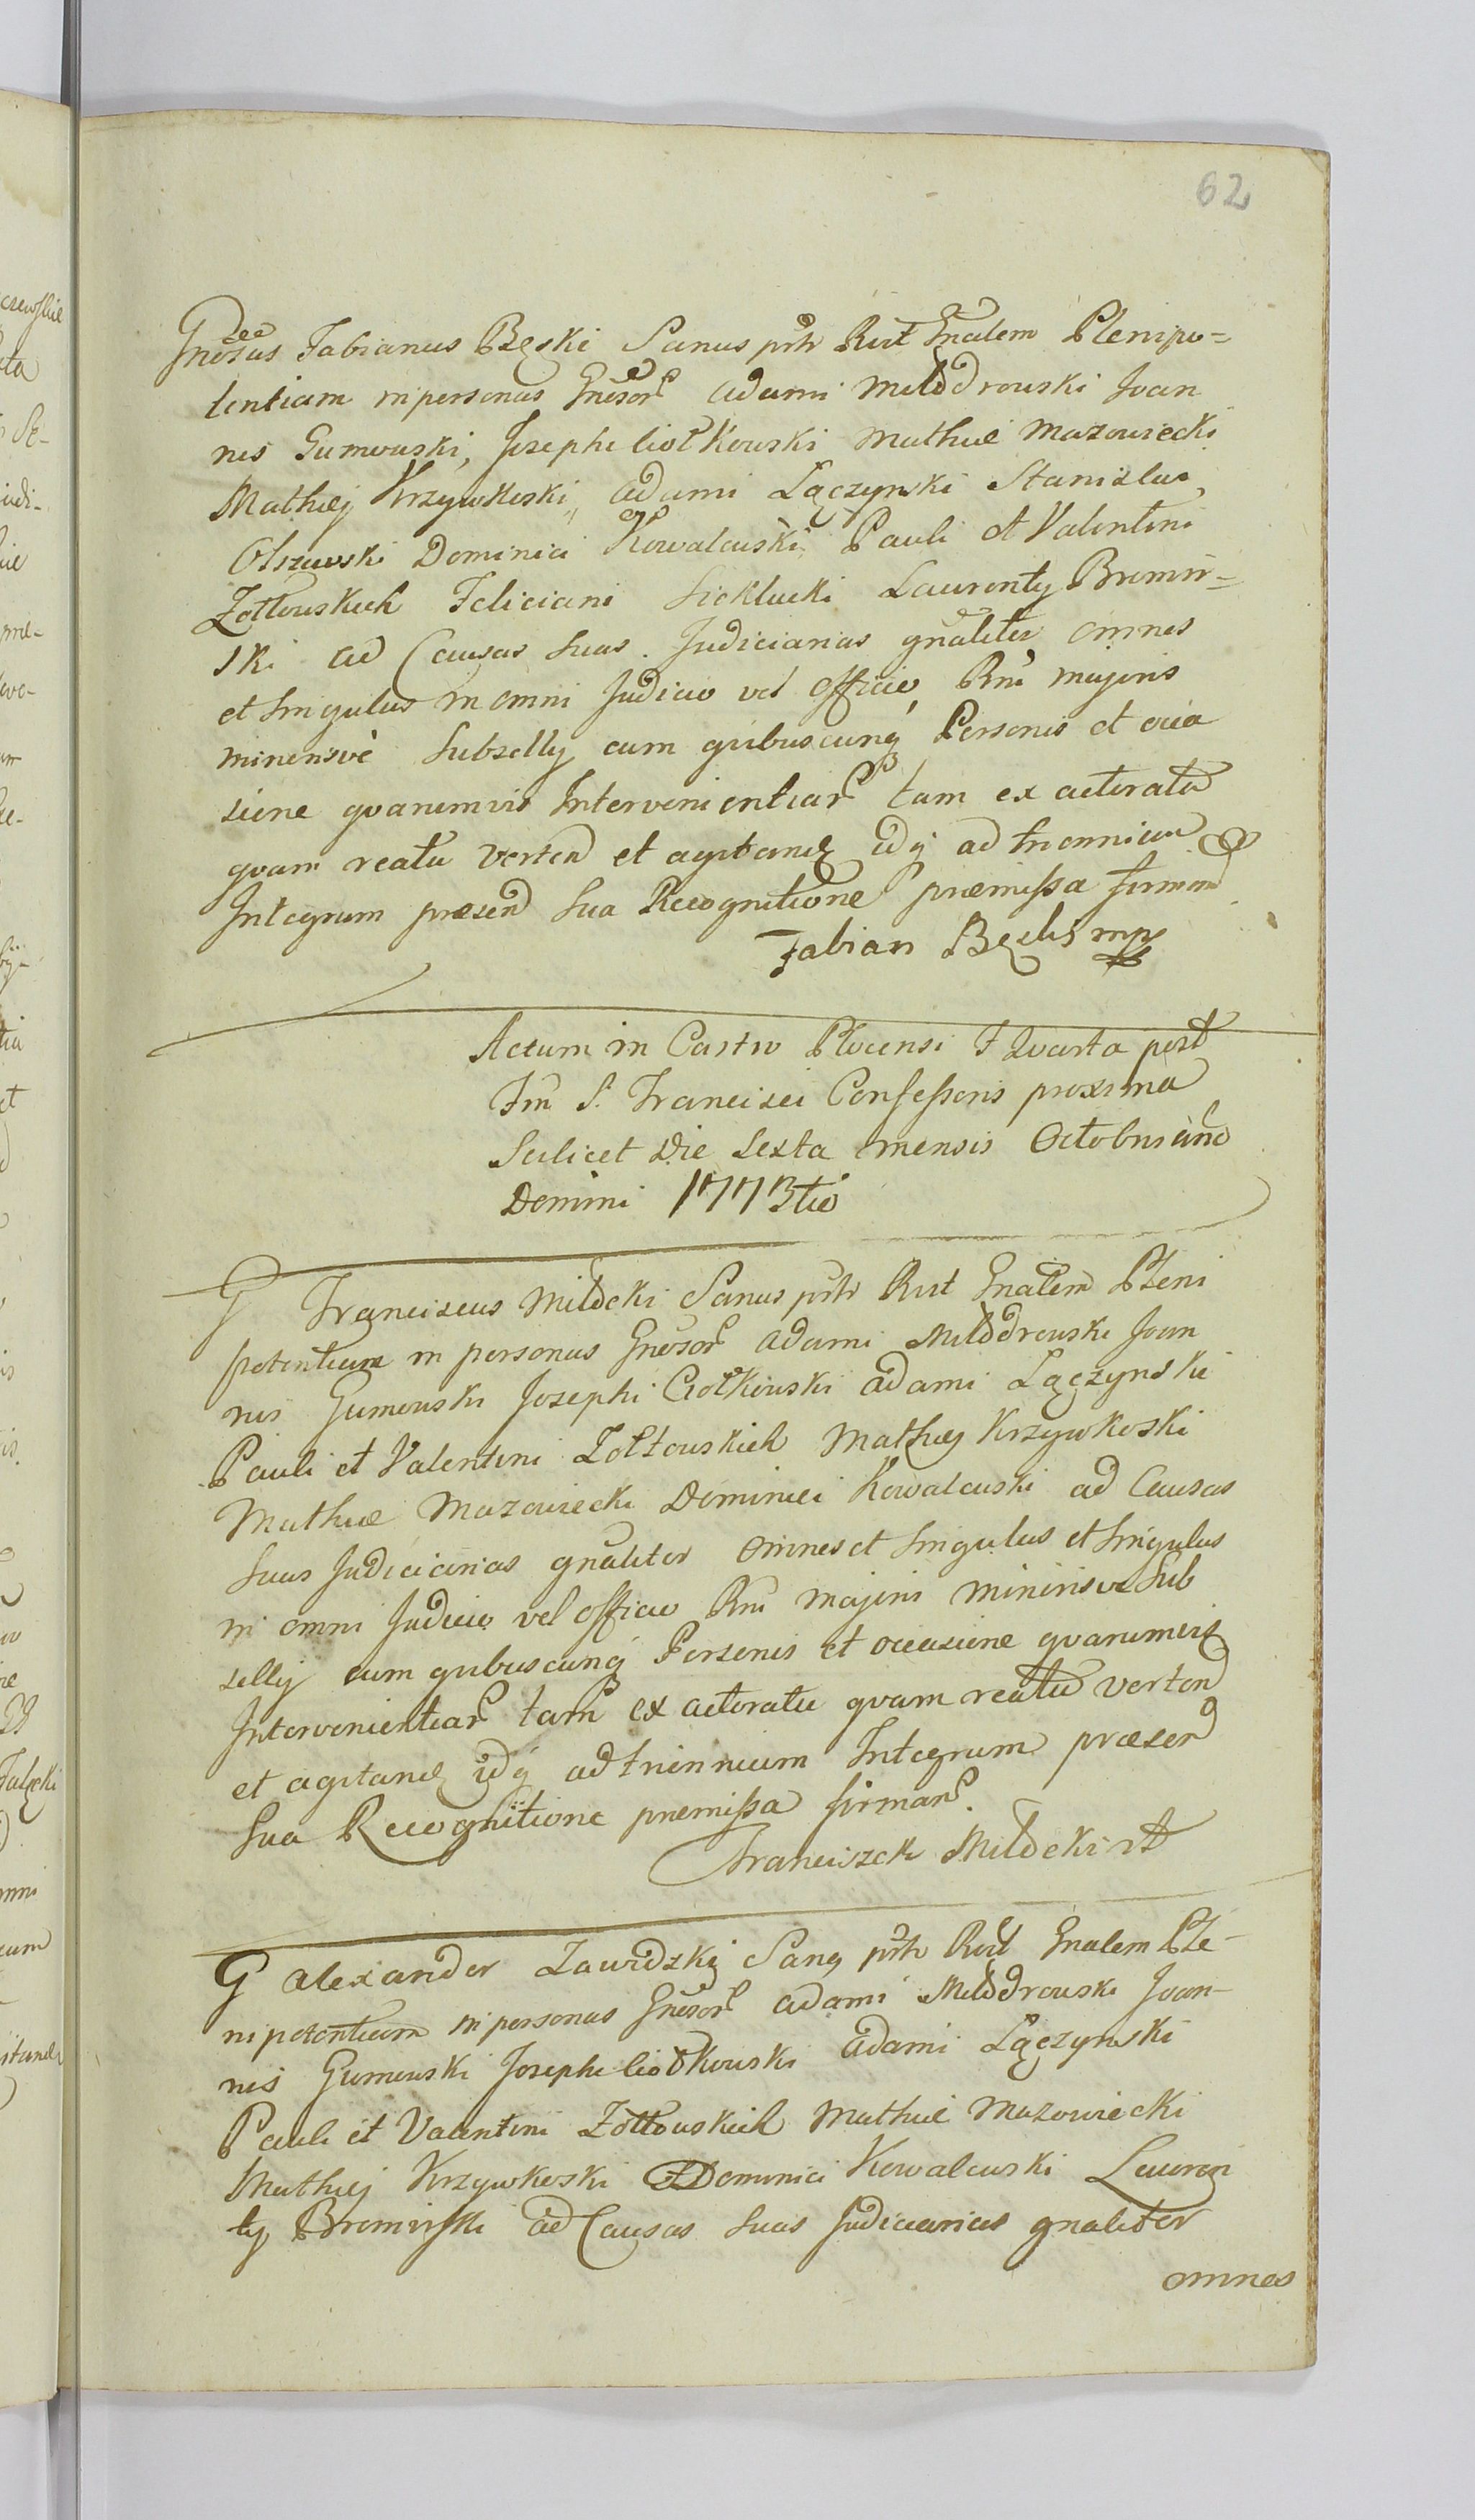 62
Gnēsus Fabianus Bęski Sanus pntr Rcit Gnalem Plenipo=
tentiam in personas Gnēsor Adami Miłodrowski Joan
nis Gumowski, Josephi Ciołkowski Mathiæ Mazowiecki
Mathiej Krzywkoski, Adami Łączynski Stanislai
Olszewski Dominici Kowalewski Pauli et Valentini
Żołtowskich Feliciani Siekłucki Laurenty Bromir=
ski ad Causas Suas Judiciarias gnaliter omnes
et Singulas in omni Judicio vel officio, Rni majoris
minorisvè Subselly cum quibuscunq Personis et occa
sione qvarumvis Intervenientiar tam ex actoratu
qvam reatu verten et agitand idq ad triennium
Integrum præsen Sua Recognitione præmissa firman
Fabian Bęski mp
Actum in Castro Plocensi F Qvarta post
Fm S. Francisci Confessoris proxima
Scilicet Die Sexta mensis Octobris año
Domini 1773tio
G Franciscus Miłocki Sanus pntr Rcit Gnalem Pleni
potentiam in personas Gnēsor Adami Miłodrowski Joan
nis Gumowski Josephi Ciołkowski Adami Łączynski
Pauli et Valentini Żołtowskich Mathiej Krzywkoski
Mathiæ Mazowiecki Dominici Kowalewski ad Causas
Suas Judiciarias gnaliter omnes et Singulas et Singulas
in omni Judicio vel officio Rni majoris minorisve Sub
selly cum quibuscunq Personis et occasione qvarumvis
Intervenientiar tam ex actoratu qvam reatu verten
et agitand idq ad triennium Integrum præsen
Sua Recognitione præmissa firman.
Franciszek Miłocki
G Alexander Zawidzki Sanq pntr Rcit Gnalem Ple-
nipotentiam in personas Gnēsor Adami Miłodrowski Joan-
nis Gumowski Josephi Ciołkowski Adami Łączynski
Pauli et Valentini Żołtowskich Mathiæ Mazowiecki
Mathiej Krzywkoski Dominici Kowalewski Lauren
ty Bromirski ad Causas Suas Judiciarias gnaliter
omnes